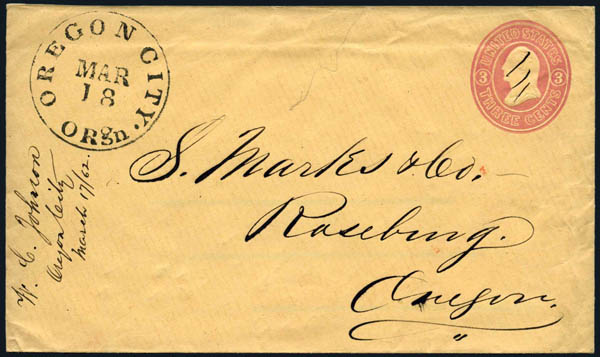 OREGON CITY.
MAR
18
ORgn.
UNITED STATES
3 3
THREE CENTS
S. Marks & Co.
Roseburg.
Oregon.
W. C. Johnson
Oregon City
March 17/62.